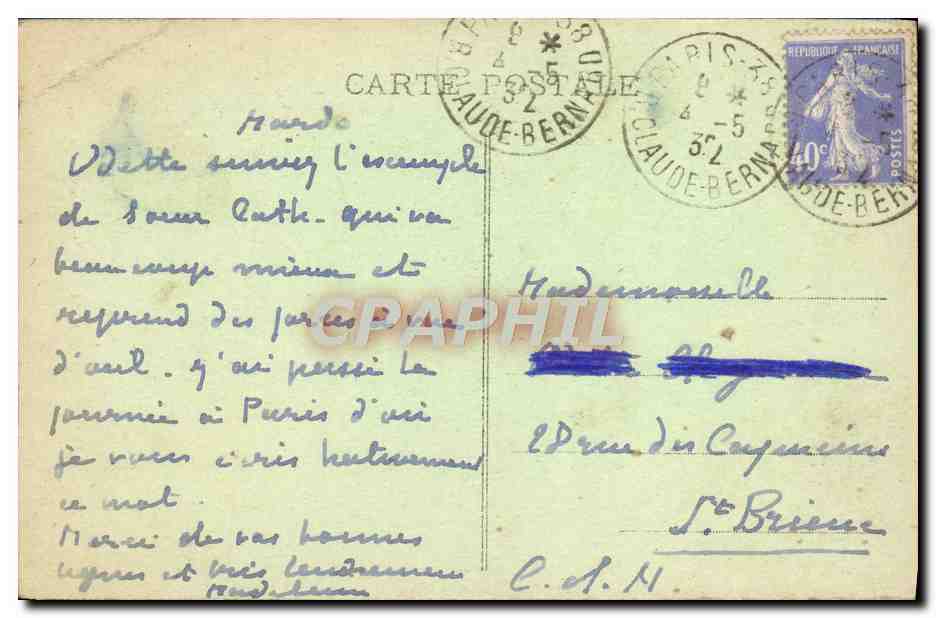 CARTE POSTALE
PARIS-38
8 *
4 -5
32
R. CLAUDE-BERNARD
RÉPUBLIQUE FRANÇAISE
40c
POSTES
Mardi
Odette suivez l'exemple
de Soeur Cath. qui va
beaucoup mieux et
reprend des forces à vue
d'oeil. J'ai passé la
journée à Paris d'où
je vous écris hativement
ce mot.
Merci de vos bonnes
lignes et bien tendrement
Madeleine
Mademoiselle
28 rue des Capucins
St Brieuc
C. d. N.
CPAPHIL